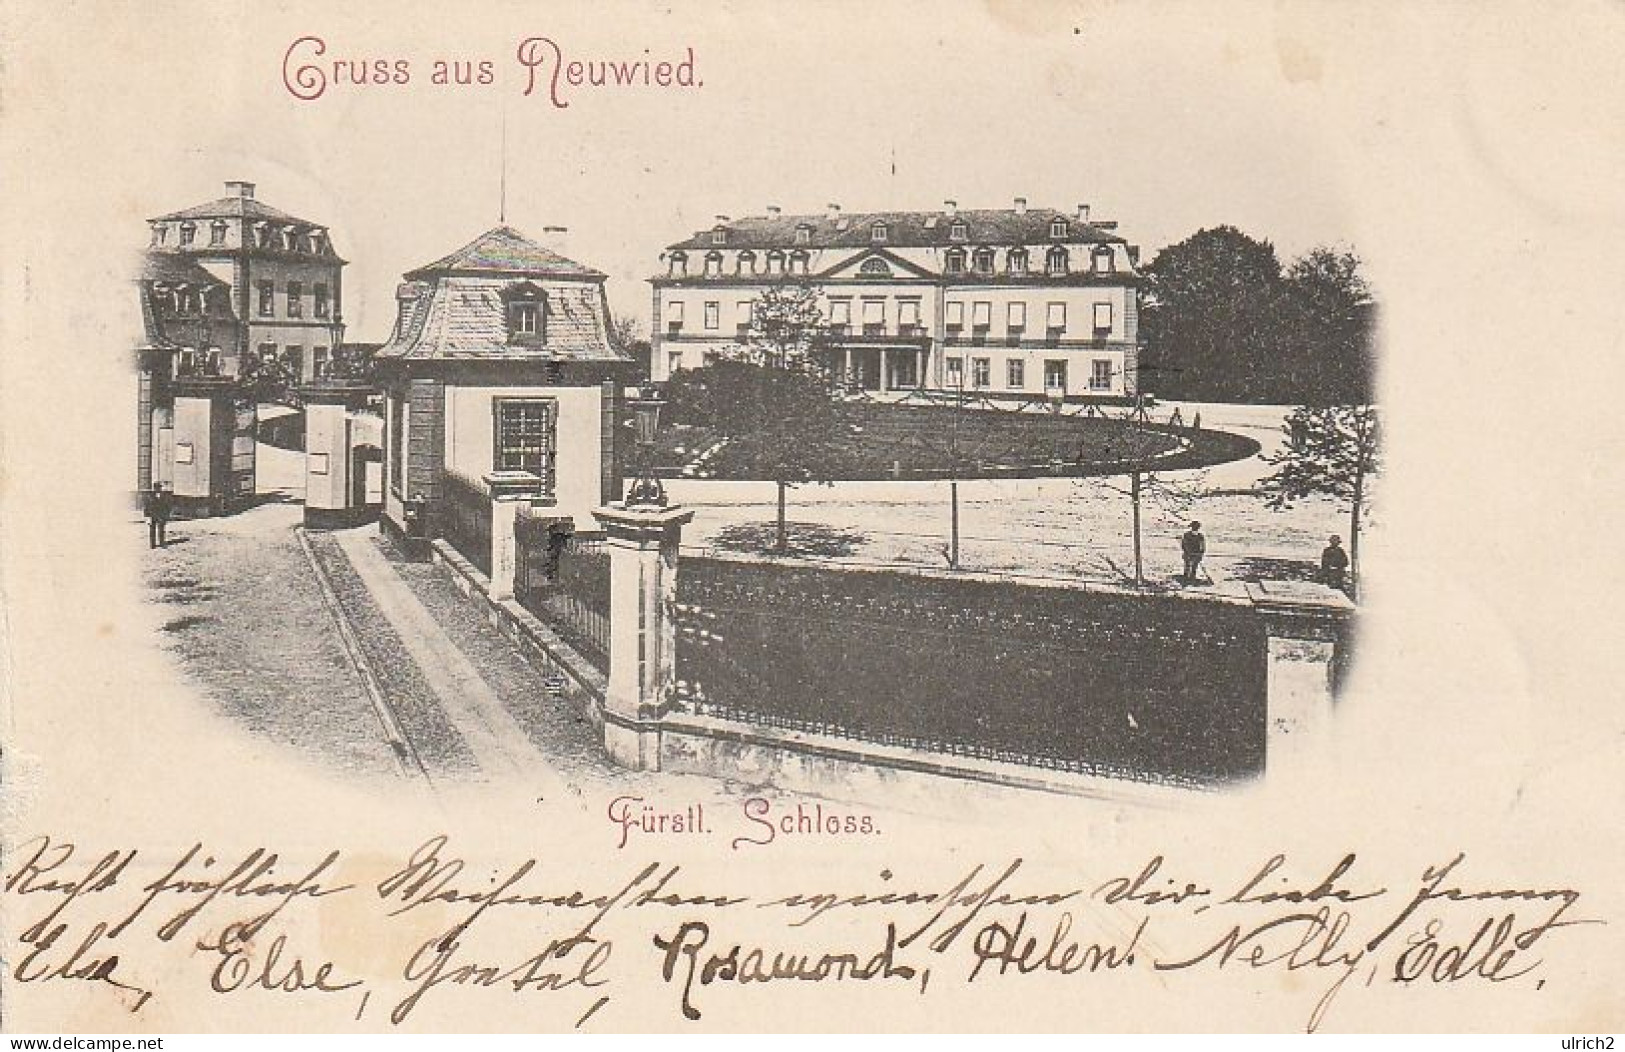 Gruss aus Neuwied.
Fürstl. Schloss.
Recht fröhliche Weihnachten wünschen Dir, liebe Jenny
Elsa, Else, Gretel, Rosamond, Helen! Nelly, Edle.
www.delcampe.net
ulrich2